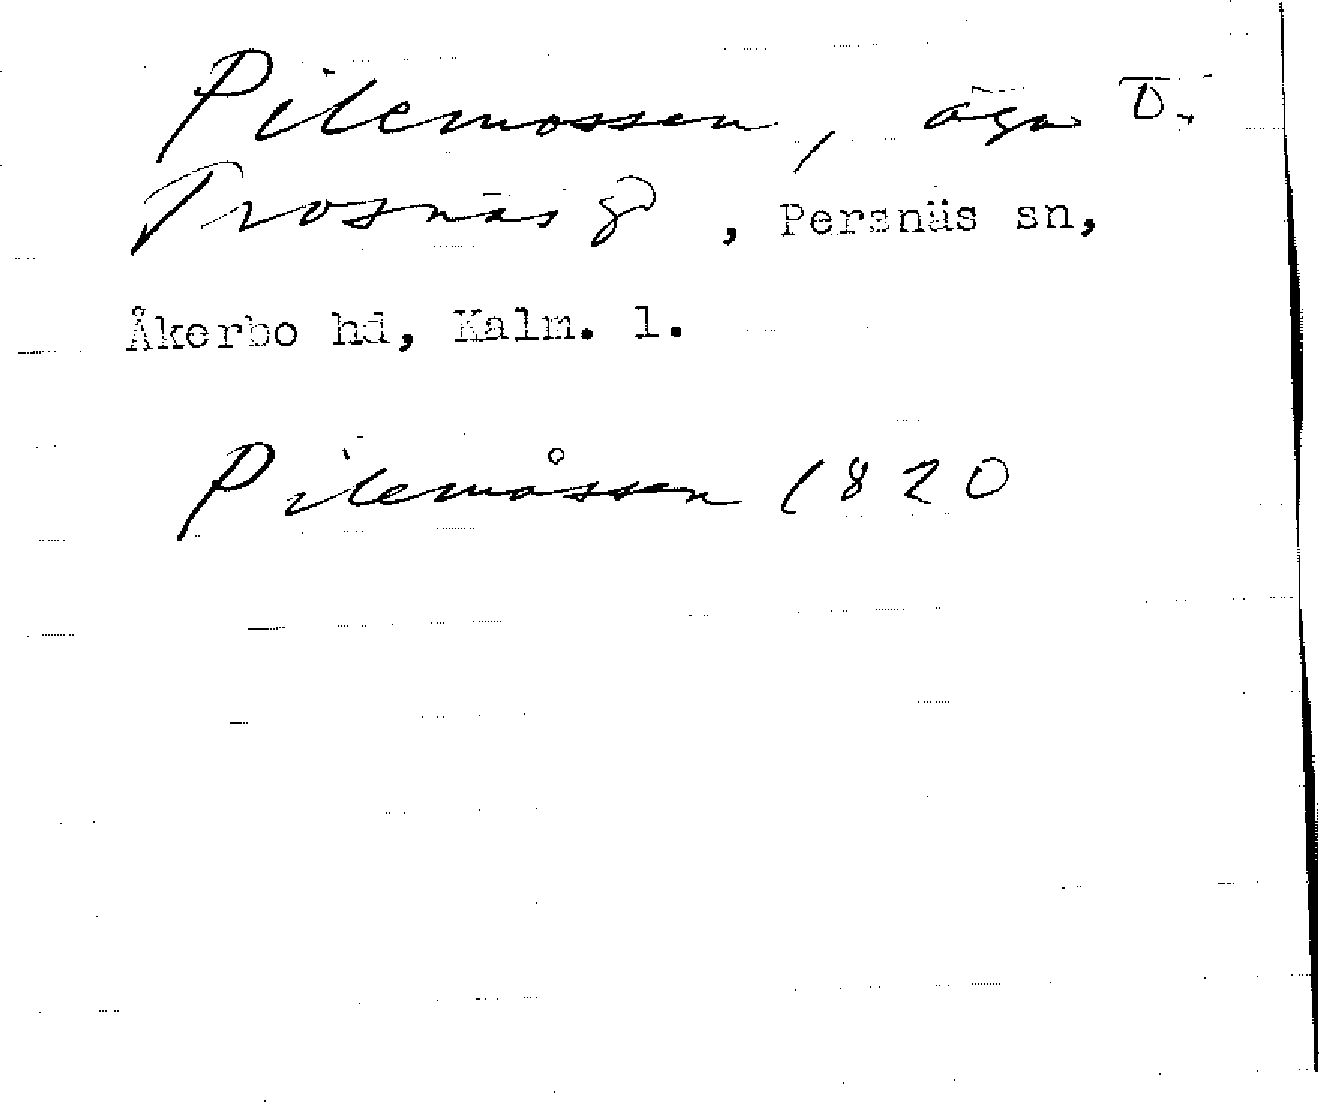 Pilemossen, äga Ö.
Trosnäs g, Persnäs sn,
Åkerbo hd, Kalm. l.
Pilemåssen 1820